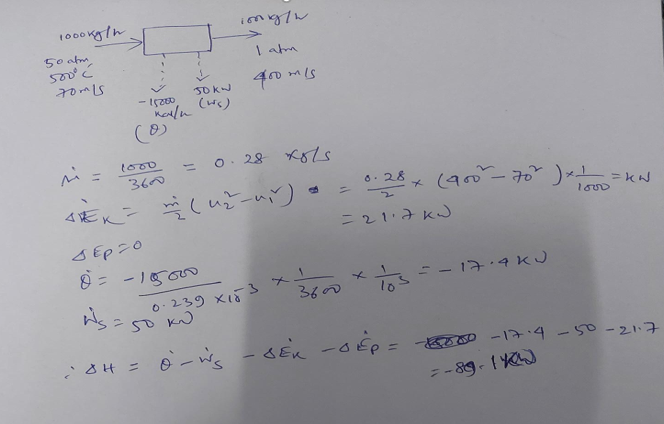 1000kg/h
1000kg/h
50 atm
500°C
70m/s
1 atm
400 m/s
-15000
Kcal/h
(Q)
50 KW
(Ws)
ṁ = 1000/3600 = 0.28 kg/s
ΔĖK = ṁ/2 (u2² - u1²) = 0.28/2 × (400² - 70²) × 1/1000 = kW
= 21.7 kW
ΔEp = 0
Q̇ = -15000/0.239 × 10-3 × 1/3600 × 1/10³ = -17.4 kW
Ẇs = 50 KW
∴ ΔH = Q̇ - Ẇs - ΔĖK - ΔĖp = -17.4 - 50 - 21.7
= -89.1 KW